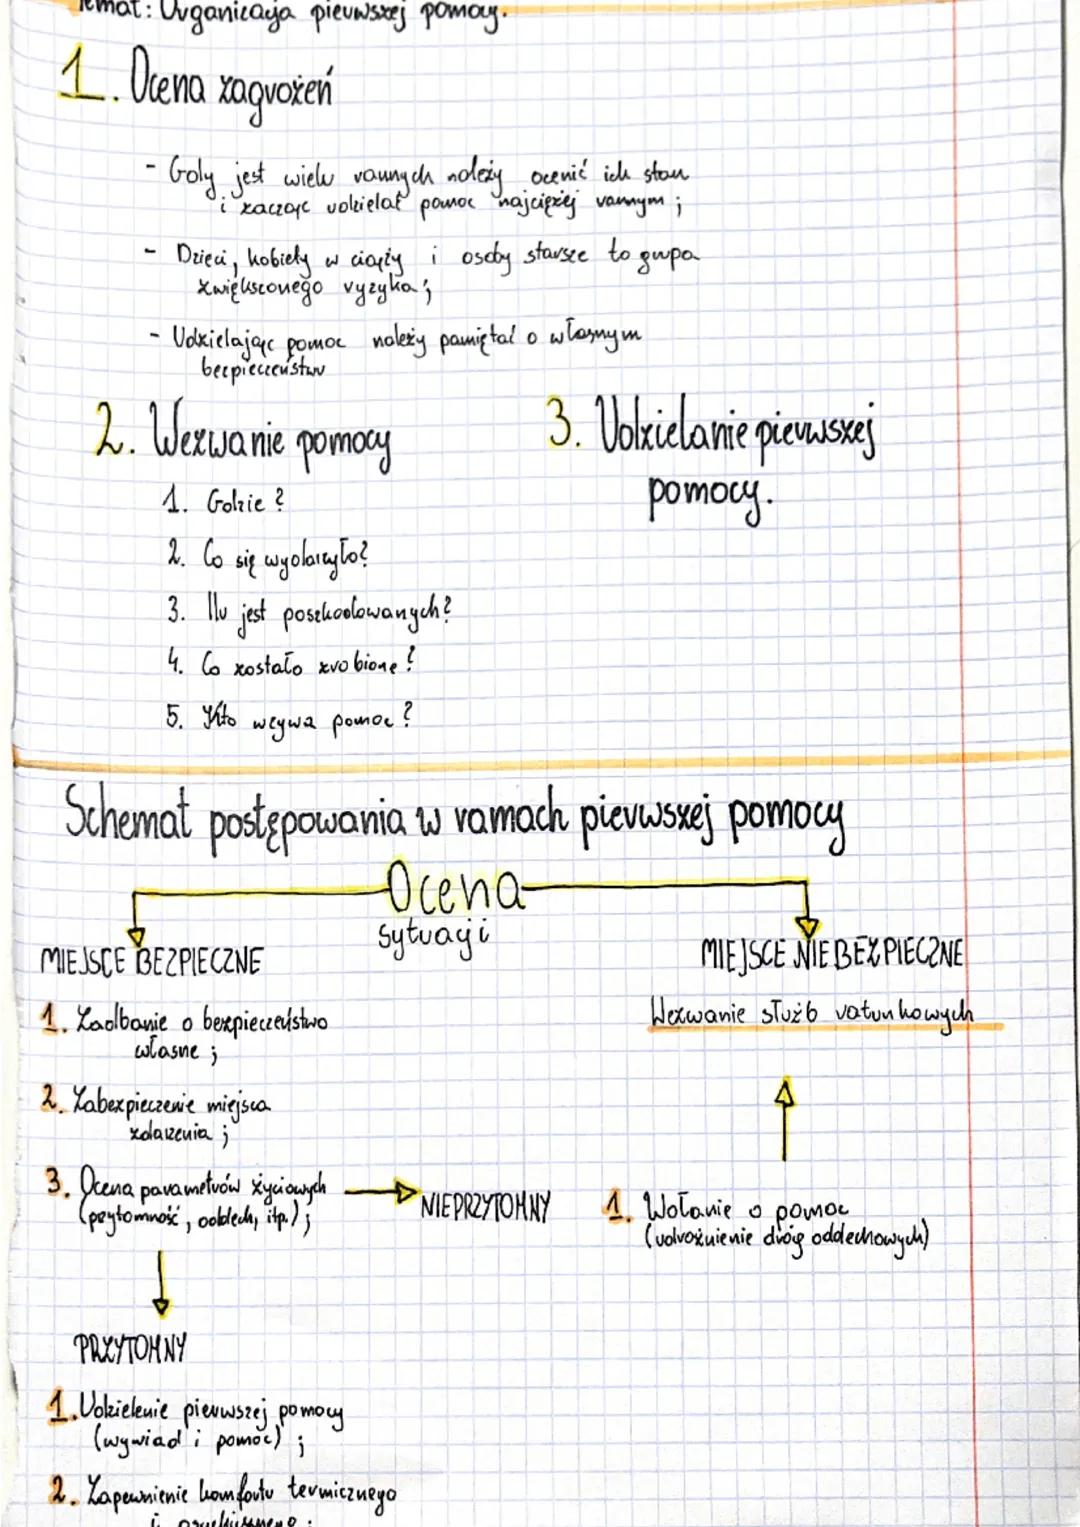 Temat: Organizacja pierwszej pomocy.
1. Ocena zagrożeń
- Gdy jest wielu rannych należy ocenić ich stan
i zacząć udzielać pomoc najciężej rannym ;
- Dzieci, kobiety w ciąży i osoby starsze to grupa
zwiększonego ryzyka ;
- Udzielając pomoc należy pamiętać o własnym
bezpieczeństwu
2. Wezwanie pomocy
1. Gdzie ?
2. Co się wydarzyło?
3. Ilu jest poszkodowanych?
4. Co zostało zrobione ?
5. Kto wzywa pomoc ?
3. Udzielanie pierwszej
pomocy.
Schemat postępowania w ramach pierwszej pomocy
Ocena
sytuacji
MIEJSCE BEZPIECZNE
1. Zadbanie o bezpieczeństwo
własne ;
2. Zabezpieczenie miejsca
zdarzenia ;
3. Ocena parametrów życiowych
(przytomność, oddech, itp.) ;
NIEPRZYTOMNY
PRZYTOMNY
1. Udzielenie pierwszej pomocy
(wywiad i pomoc) ;
2. Zapewnienie komfortu termicznego
i psychicznego ;
MIEJSCE NIEBEZPIECZNE
Wezwanie służb ratunkowych
1. Wołanie o pomoc
(udrożnienie dróg oddechowych)